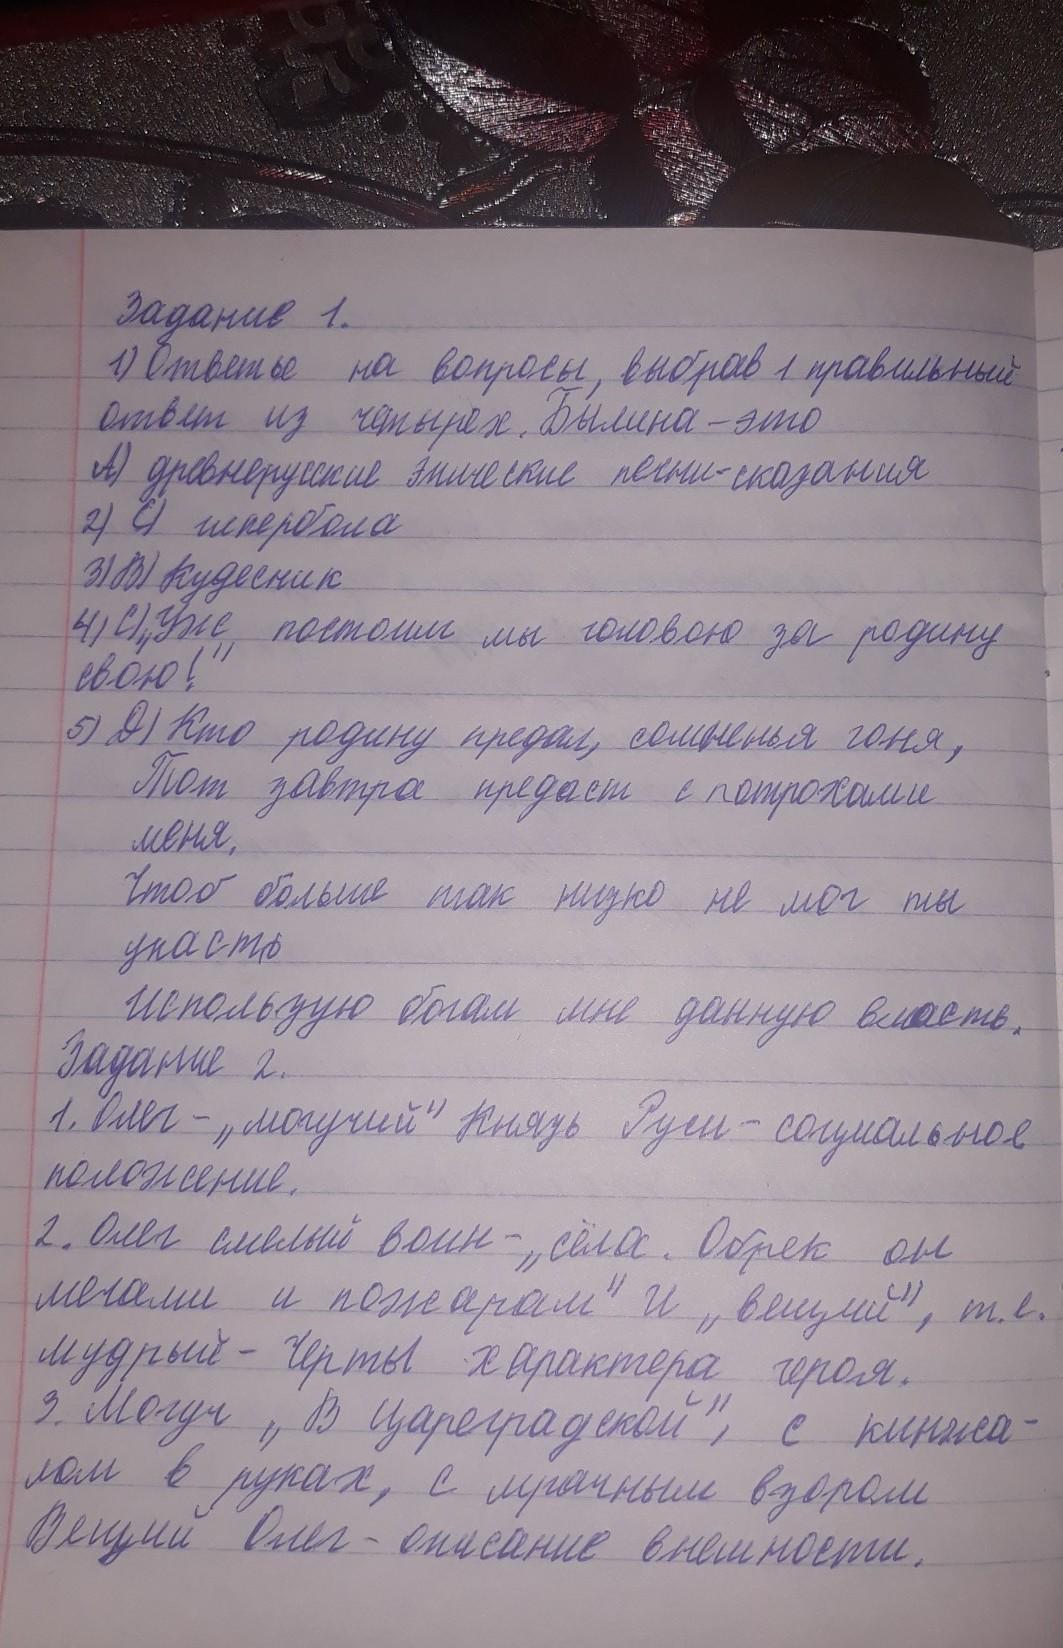 Задание 1.
1) Ответье на вопросы, выбрав 1 правильный
ответ из четырех. Былина - это
А) древнерусские эпические песни-сказания
2) С) гипербола
3) В) Кудесник
4) С) „Уж постоим мы головою за родину
свою!"
5) D) Кто родину предал, сомненья гоня,
Тот завтра предаст с потрохами
меня.
Чтоб больше так низко не мог ты
упасть
Использую богам мне данную власть.
Задание 2.
1. Олег - „могучий" Князь Руси - социальное
положение.
2. Олег смелый воин - „сёла. Обрек он
мечами и пожарам" И „вещий", т.е.
мудрый - Черты характера героя.
3. Могуч „В Цареградской", с кинжа-
лом в руках, с мрачным взором
Вещий Олег - описание внешности.